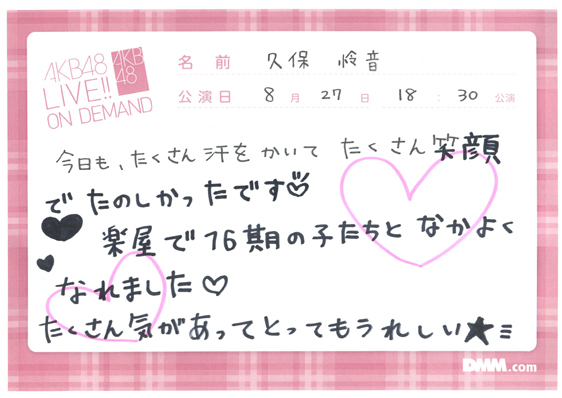 AKB48
LIVE!!
ON DEMAND
AKB
48
名前 久保 怜音
公演日 8月 27日 18:30公演
今日も、たくさん汗をかいて たくさん笑顔
でたのしかったです
楽屋で16期の子たちとなかよく
なれました♡
たくさん気があってとってもうれしい★
DMM.com